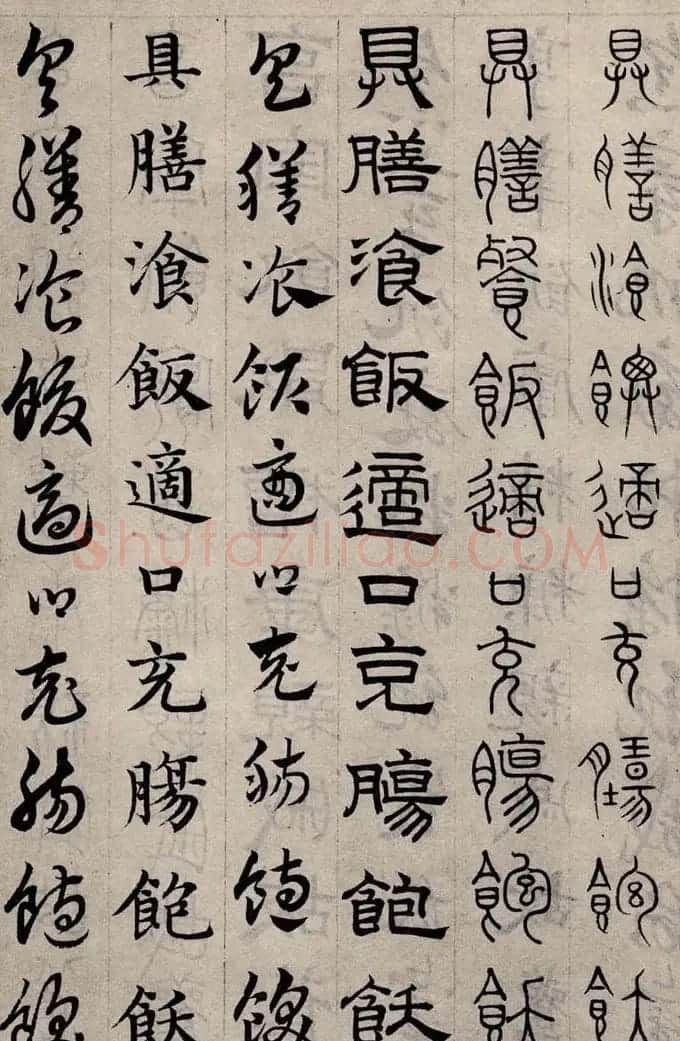 具膳湌飯適口充腸飽飫
具膳餐飯適口充腸飽飫
具膳湌飯適口充腸飽飫
具膳飡飯適口充腸飽飫
具膳湌飯適口充腸飽飫
具膳飡飯適口充腸飽飫
Shufaziliao.COM